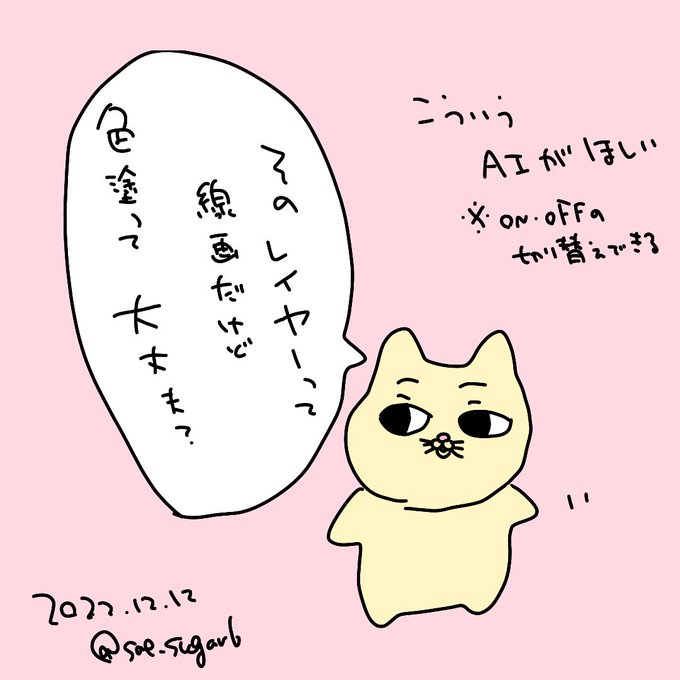 そのレイヤーって
線画だけど
色塗って
大丈夫?
こういう
AIがほしい
※ON・OFFの
切り替えできる
2022.12.12
@sae_sugar6